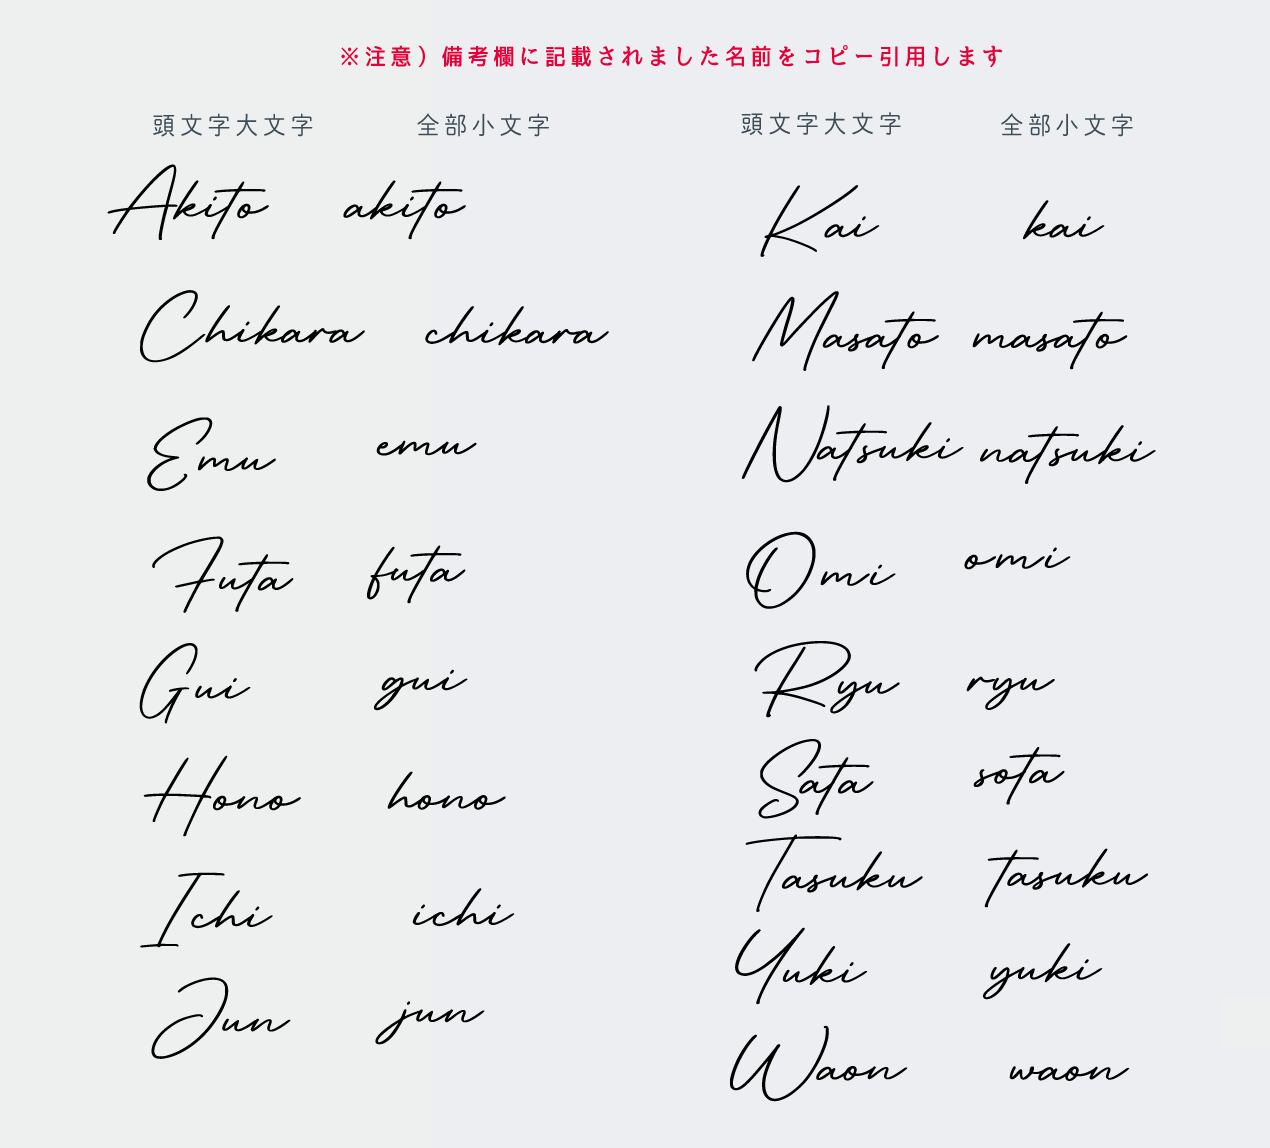 ※注意）備考欄に記載されました名前をコピー引用します
頭文字大文字 全部小文字
Akito akito
Chikara chikara
Emu emu
Futa futa
Gui gui
Hono hono
Ichi ichi
Jun jun
頭文字大文字 全部小文字
Kai kai
Masato masato
Natsuki natsuki
Omi omi
Ryu ryu
Sata sota
Tasuku tasuku
Yuki yuki
Waon waon